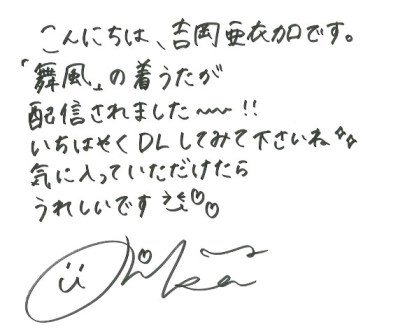 こんにちは、吉岡亜衣加です。
「舞風」の着うたが
配信されました〜〜!!
いちはやくDLしてみて下さいね
気に入っていただけたら
うれしいです
Aika